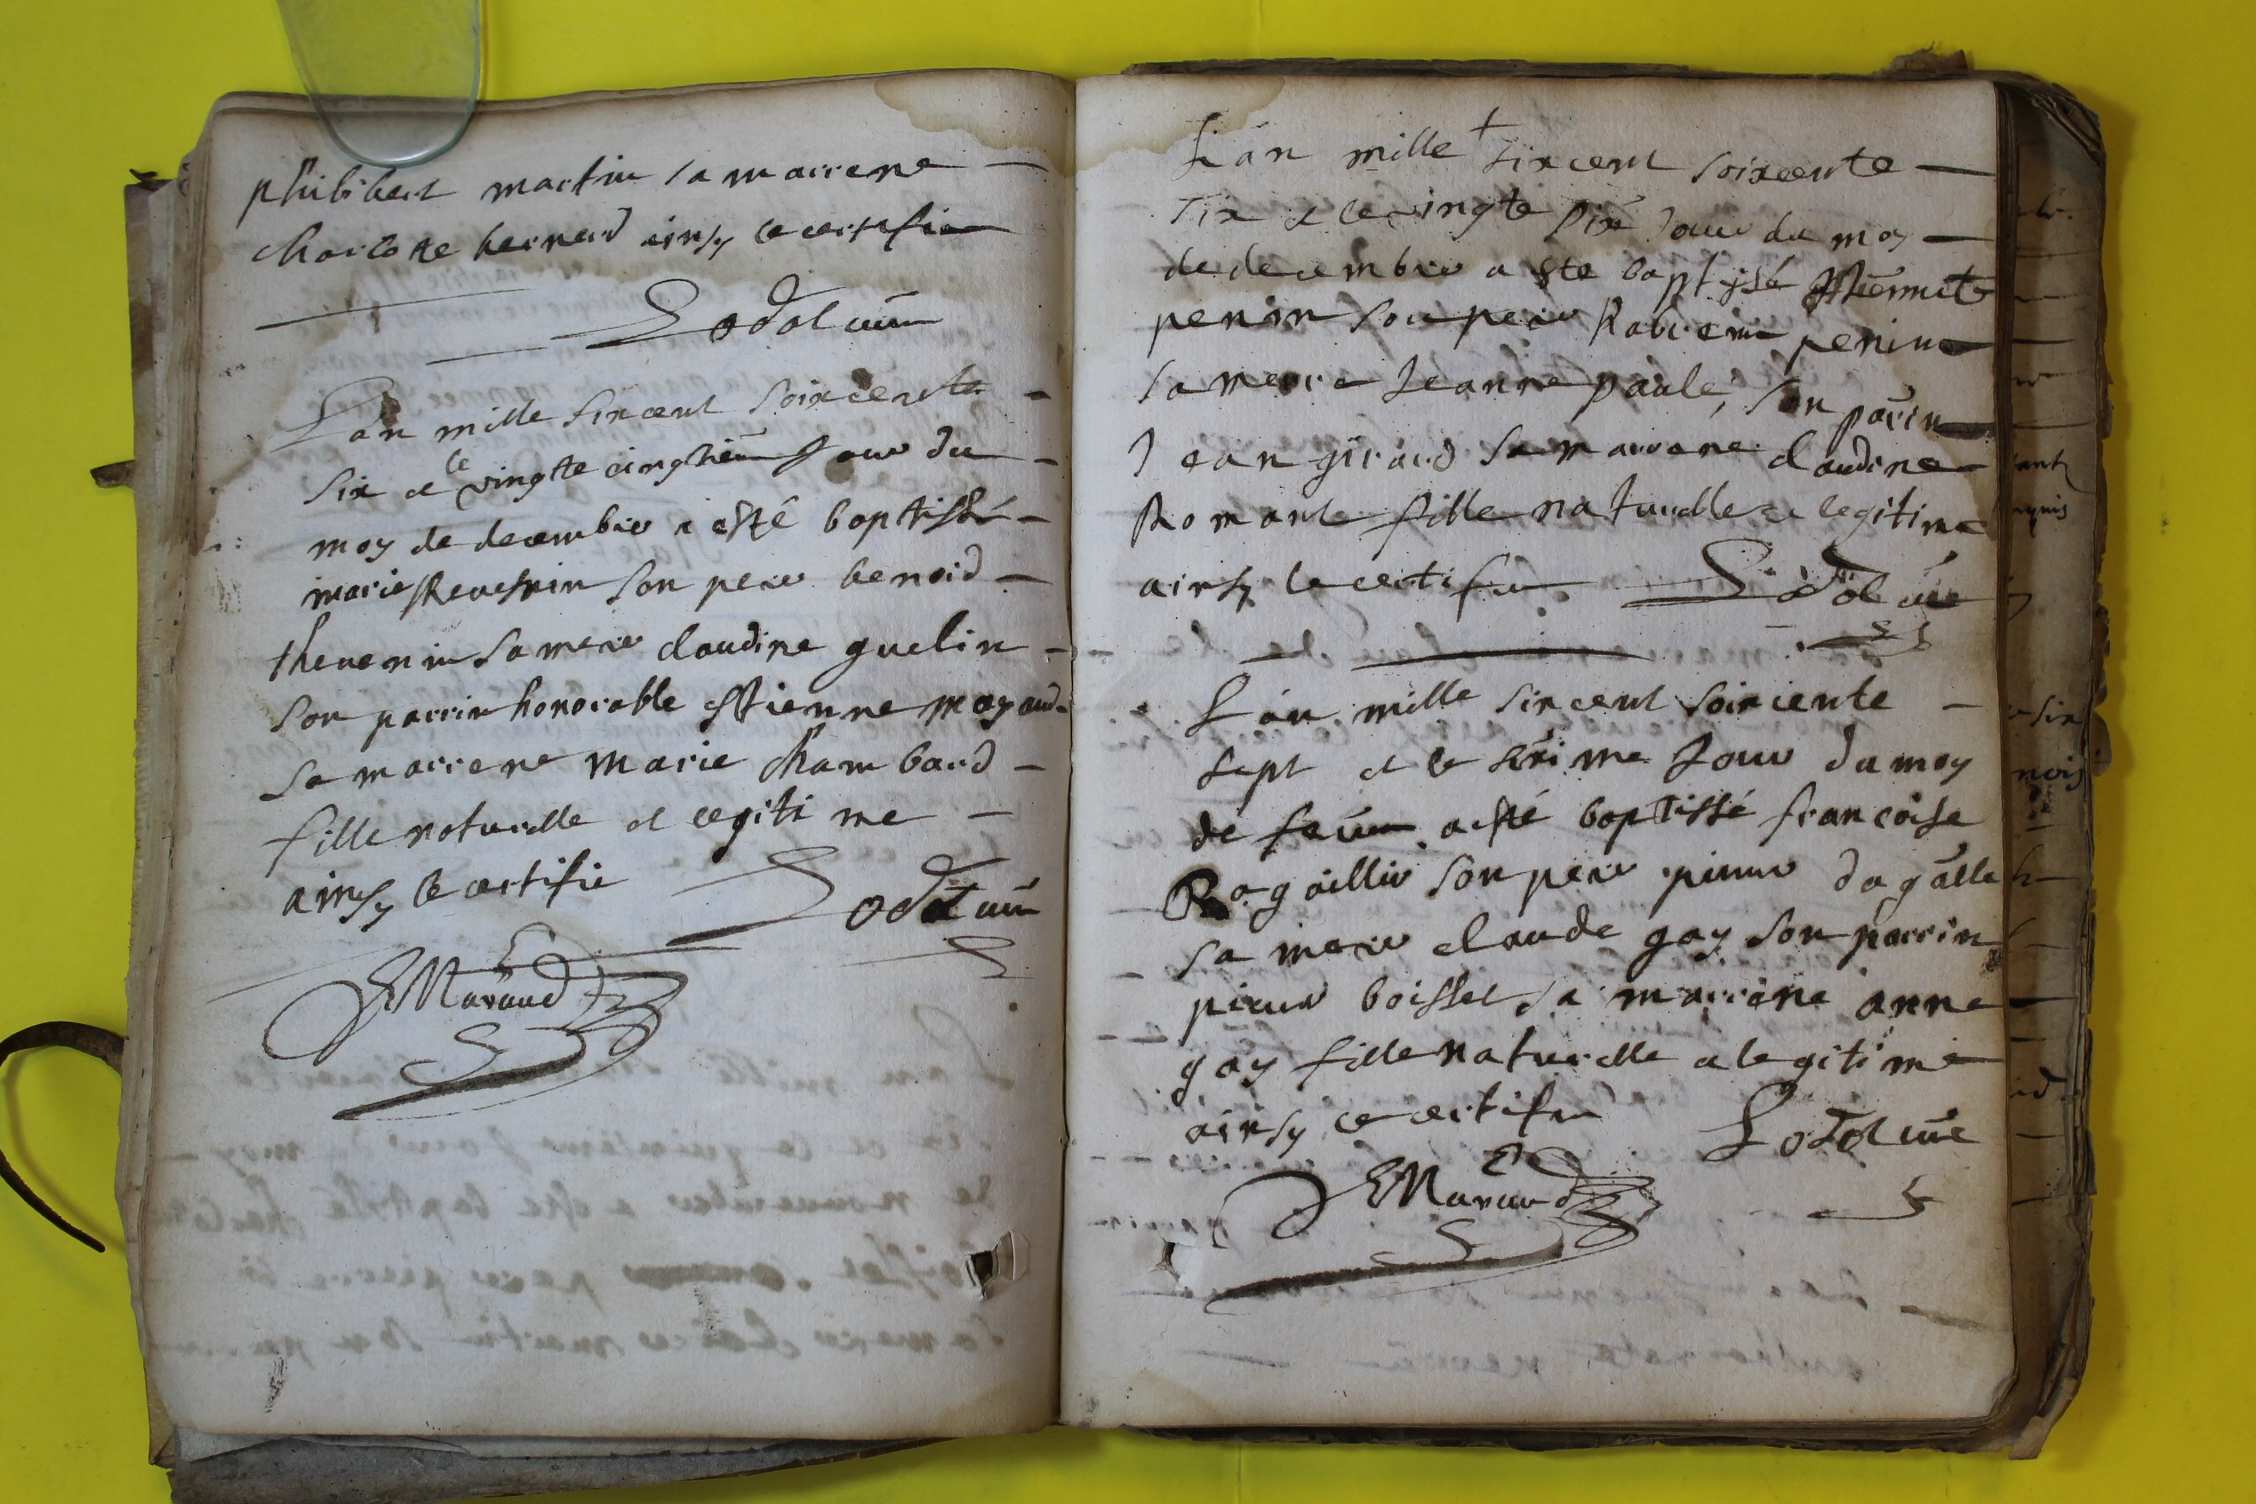 philibert martin sa marrene
charlotte bernard ainsy le certifie
Lodol
Lan mille sixcent soixcente
six et le vingte cinqhiem Jour du
moy de decembre a esté baptissé
marie thevenin son pere benoid
thevenin sa mere claudine guelin
son parrin honorable estienne mayaud
sa marrene marie chambard
fille naturelle et legiti me
ainsy le certifie Lodol
EMaraud
Lan mille sixcent soixcente
six et le vingte six Jour du moy
de decembre a este baptisé
penin son pere penin
sa merre Jeanne paule, son parin
Jean girard sa marrene claudine
Romant fille naturelle et legitime
ainsy le certifie Lodol
Lan mille sixcent soixcente
sept et le Jour du moy
de a esté baptissé francoise
Ragaillir son pere pierre dagalle
sa mere claude gay son parrin
pierre boisset sa marrene anne
gay fille naturelle et legitime
ainsy le certifie Lodol
EMaraud